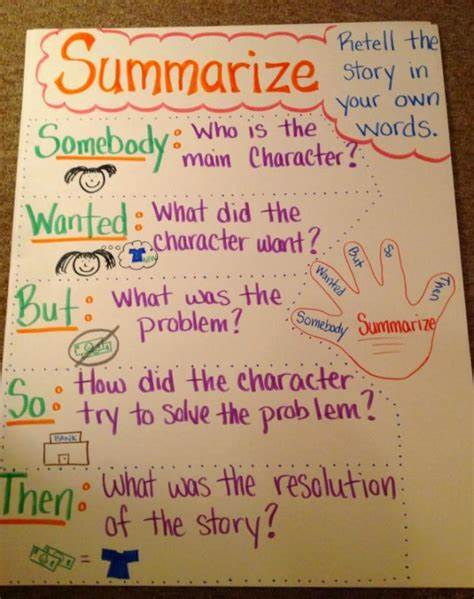 Summarize
Retell the
story in
your own
words.
Somebody: Who is the
main Character?
Wanted: What did the
character want?
But: What was the
problem?
So: How did the character
try to solve the problem?
BANK
Then: What was the resolution
of the story?
=
Somebody
Wanted
But
So
Then
Summarize